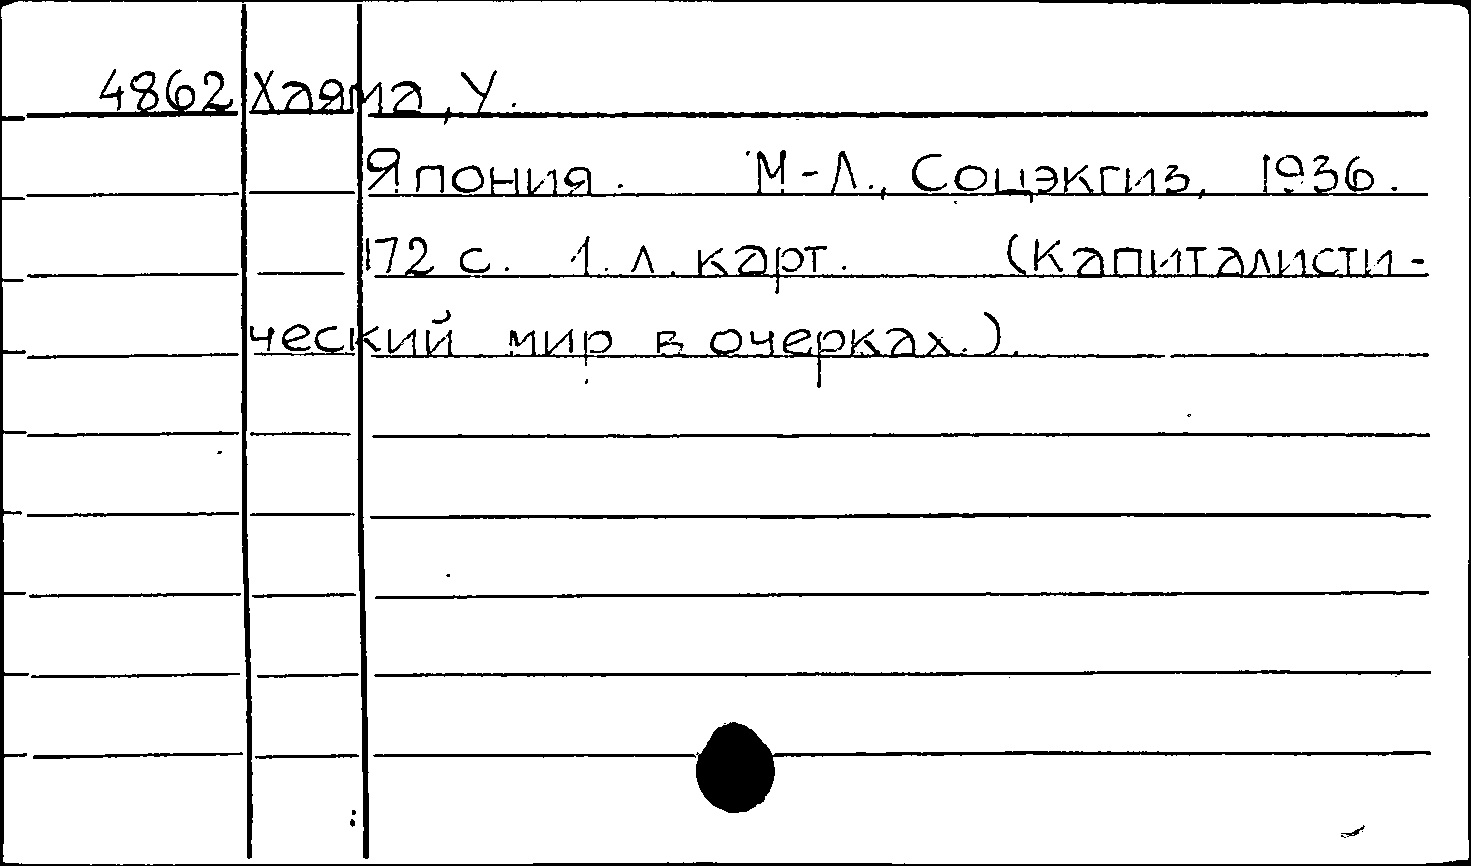 4862 Хаяма, У.
Япония. М-Л., Соцэкгиз, 1936.
172 с. 1. л. карт. (Капиталисти-
ческий мир в очерках.).